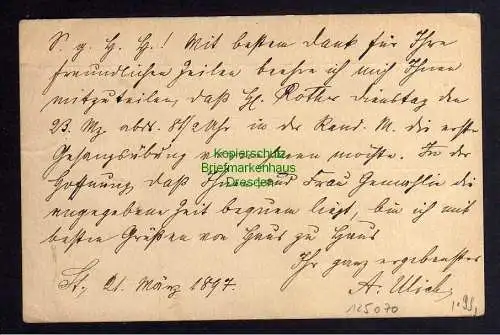 S. g. H. H.! Mit bestem Dank für Ihre
freundlichen Zeilen beehre ich mich Ihnen
mitzuteilen, daß H. Rother Dienstag den
23. Mz abds. 8 1/2 Uhr in der Rend. M. die erste
Gesangsübung vornehmen möchte. In der
Hoffnung, daß Ihnen und Frau Gemahlin die
angegebene Zeit bequem liegt, bin ich mit
besten Grüßen von Haus zu Haus
Ihr ganz ergebenster
St., 21. März 1897. A. Ulich
125070 1.99,
Kopierschutz
Briefmarkenhaus
Dresden